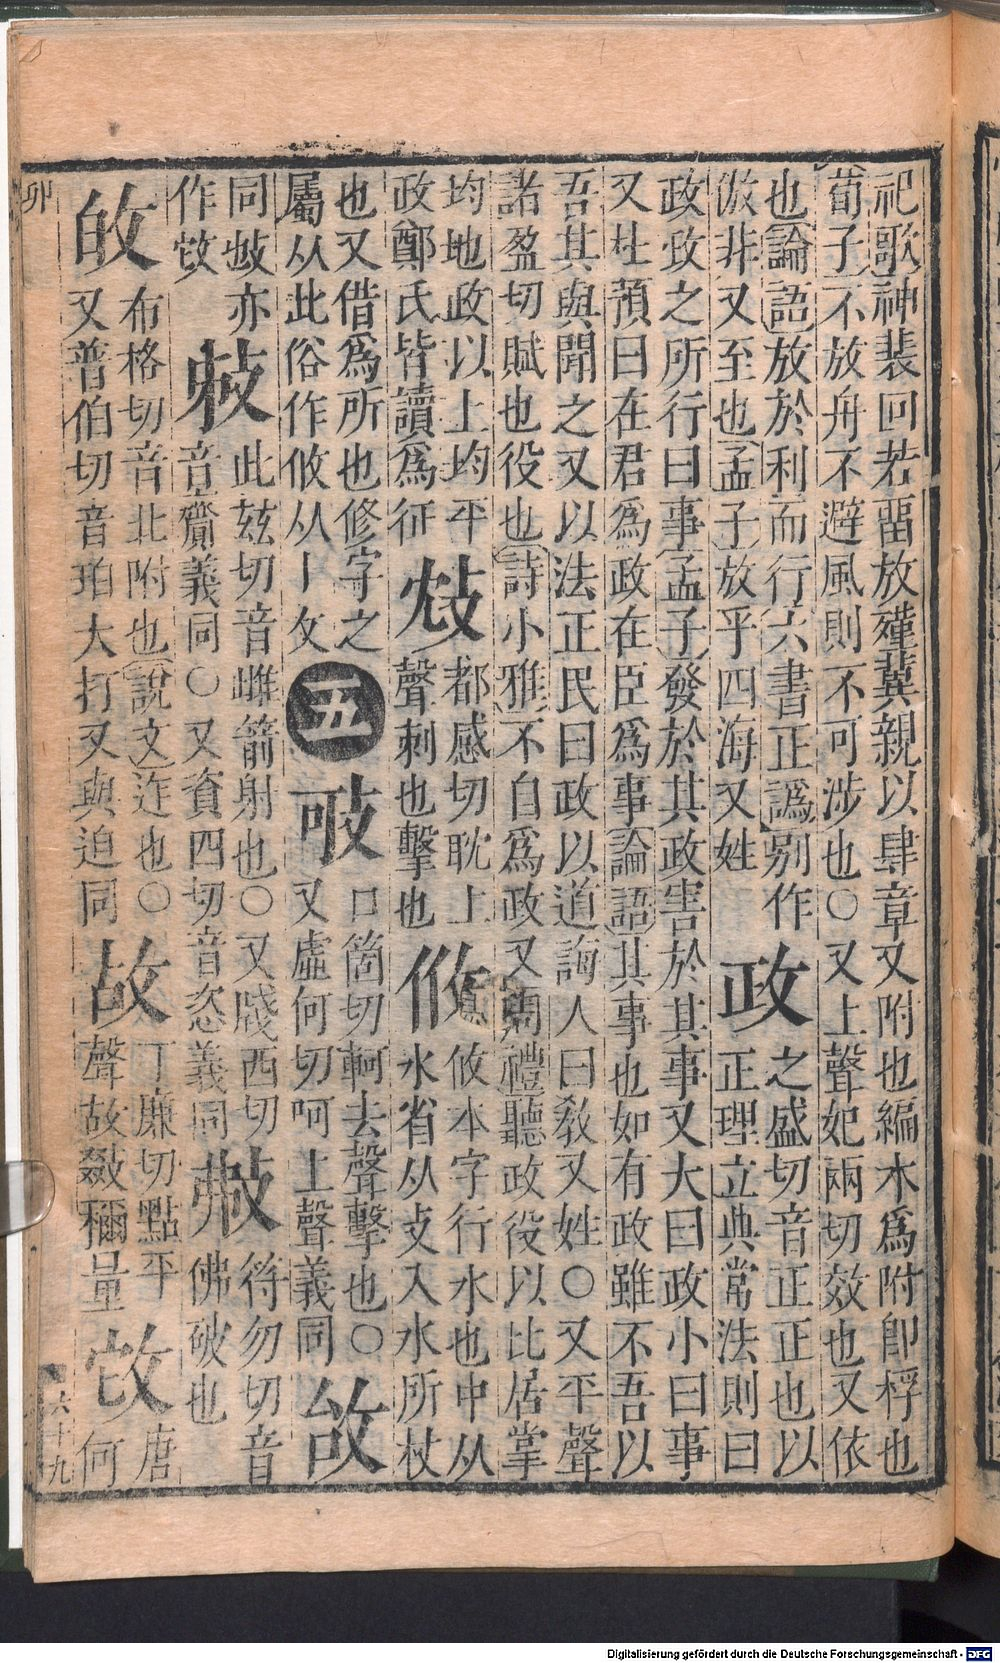 祀歌神裴回若畱放殣冀親以肆章又附也編木爲附卽桴也
荀子不放舟不避風則不可涉也○又上聲妃兩切效也又依
也論語放於利而行六書正譌別作
倣非又至也孟子放乎四海又姓
政
之盛切音正正也以
正理立典常法則曰
政政之所行曰事孟子發於其政害於其事又大曰政小曰事
又杜預曰在君爲政在臣爲事論語其事也如有政雖不吾以
吾其與聞之又以法正民曰政以道誨人曰敎又姓○又平聲
諸盈切賦也役也詩小雅不自爲政又周禮聽政役以比居掌
均地政以上均平
政鄭氏皆讀爲征
都感切耽上
聲刺也擊也
攸本字行水也中从
水省从攴入水所杖
也又借爲所也修字之
屬从此俗作攸从丨攵
五
㪃
口箇切軻去聲擊也○
又虛何切呵上聲義同
同亦
作
此玆切音雌箭射也○又戔西切
音齎義同○又資四切音恣義同
符勿切音
佛破也
敀
布格切音北附也說文迮也○
又普伯切音珀大打又與迫同
敁
丁廉切點平
聲敁敠稱量
唐
何
卯
六十九
Digitalisierung gefördert durch die Deutsche Forschungsgemeinschaft - DFG